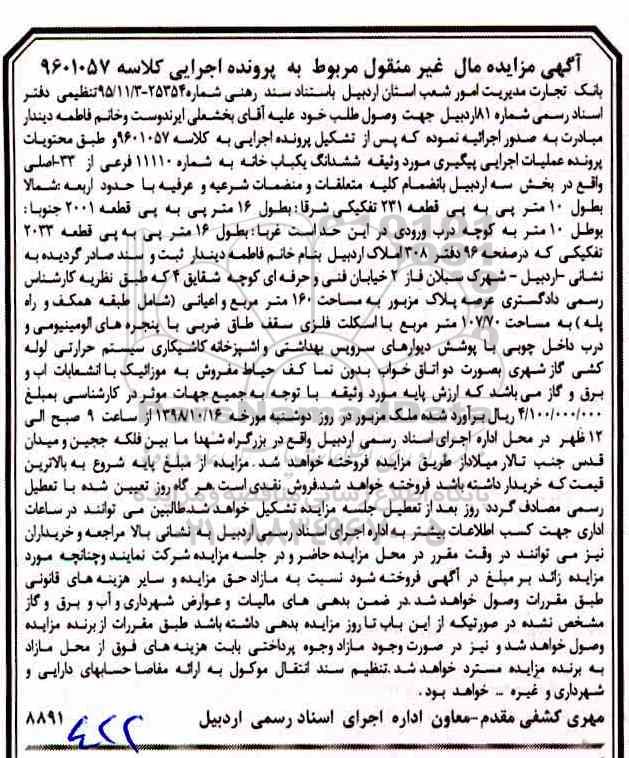 آگهی مزایده مال غیر منقول مربوط به پرونده اجرایی کلاسه ۹۶۰۱۰۵۷
بانک تجارت مدیریت امور شعب استان اردبیل باستناد سند رهنی شماره۲۵۳۵۴-۹۵/۱۱/۳تنظیمی دفتر
اسناد رسمی شماره ۸۱اردبیل جهت وصول طلب خود علیه آقای بخشعلی ایرندوست وخانم فاطمه دیندار
مبادرت به صدور اجرائیه نموده که پس از تشکیل پرونده اجرایی به کلاسه ۹۶۰۱۰۵۷و طبق محتویات
پرونده عملیات اجرایی پیگیری مورد وثیقه ششدانگ یکباب خانه به شماره ۱۱۱۱۰ فرعی از ۳۳-اصلی
واقع در بخش سه اردبیل بانضمام کلیه متعلقات و منضمات شرعیه و عرفیه با حدود اربعه :شمالا
بطول ۱۰ متر پی به پی قطعه ۲۳۱ تفکیکی شرقا: بطول ۱۶ متر پی به پی قطعه ۲۰۰۱ جنوبا:
بوطل ۱۰ متر به کوچه درب ورودی در این حد است غربا: بطول ۱۶ متر پی به پی قطعه ۲۰۳۳
تفکیکی که درصفحه ۹۶ دفتر ۳۰۸ املاک اردبیل بنام خانم فاطمه دیندار ثبت و سند صادر گردیده به
نشانی -اردبیل - شهرک سبلان فاز ۲ خیابان فنی و حرفه ای کوچه شقایق ۴ که طبق نظریه کارشناس
رسمی دادگستری عرصه پلاک مزبور به مساحت ۱۶۰ متر مربع و اعیانی (شامل طبقه همکف و راه
پله ) به مساحت ۱۰۷/۷۰ متر مربع با اسکلت فلزی سقف طاق ضربی با پنجره های الومینیومی و
درب داخل چوبی با پوشش دیوارهای سرویس بهداشتی و اشپزخانه کاشیکاری سیستم حرارتی لوله
کشی گاز شهری بصورت دو اتاق خواب بدون نما کف حیاط مفروش به موزائیک با انشعابات اب و
برق و گاز می باشد که ارزش پایه مورد وثیقه با توجه به جمیع جهات موثر در کارشناسی بمبلغ
۴/۱۰۰/۰۰۰/۰۰۰ ریال برآورد شده ملک مزبور در روز دوشنبه مورخه ۱۳۹۸/۱۰/۱۶ از ساعت ۹ صبح الی
۱۲ ظهر در محل اداره اجرای اسناد رسمی اردبیل واقع در بزرگراه شهدا ما بین فلکه ججین و میدان
قدس جنب تالار میلاداز طریق مزایده فروخته خواهد شد . مزایده از مبلغ پایه شروع به بالاترین
قیمت که خریدار داشته باشد فروخته خواهد شد.فروش نقدی است.هر گاه روز تعیین شده با تعطیل
رسمی مصادف گردد روز بعد از تعطیل جلسه مزایده تشکیل خواهد شد.طالبین می توانند در ساعات
اداری جهت کسب اطلاعات بیشتر به اداره اجرای اسناد رسمی اردبیل به نشانی بالا مراجعه و خریداران
نیز می توانند در وقت مقرر در محل مزایده حاضر و در جلسه مزایده شرکت نمایند وچنانچه مورد
مزایده زائد بر مبلغ در آگهی فروخته شود نسبت به مازاد حق مزایده و سایر هزینه های قانونی
طبق مقررات وصول خواهد شد .در ضمن بدهی های مالیات و عوارض شهرداری و آب و برق و گاز
مشخص نشده در صورتیکه از این باب تا روز مزایده بدهی داشته باشد طبق مقررات از برنده مزایده
وصول خواهد شد و نیز در صورت وجود مازاد وجوه پرداختی بابت هزینه های فوق از محل مازاد
به برنده مزایده مسترد خواهد شد .تنظیم سند انتقال موکول به ارائه مفاصا حسابهای دارایی و
شهرداری و غیره ... خواهد بود .
مهری کشفی مقدم -معاون اداره اجرای اسناد رسمی اردبیل
۸۸۹۱